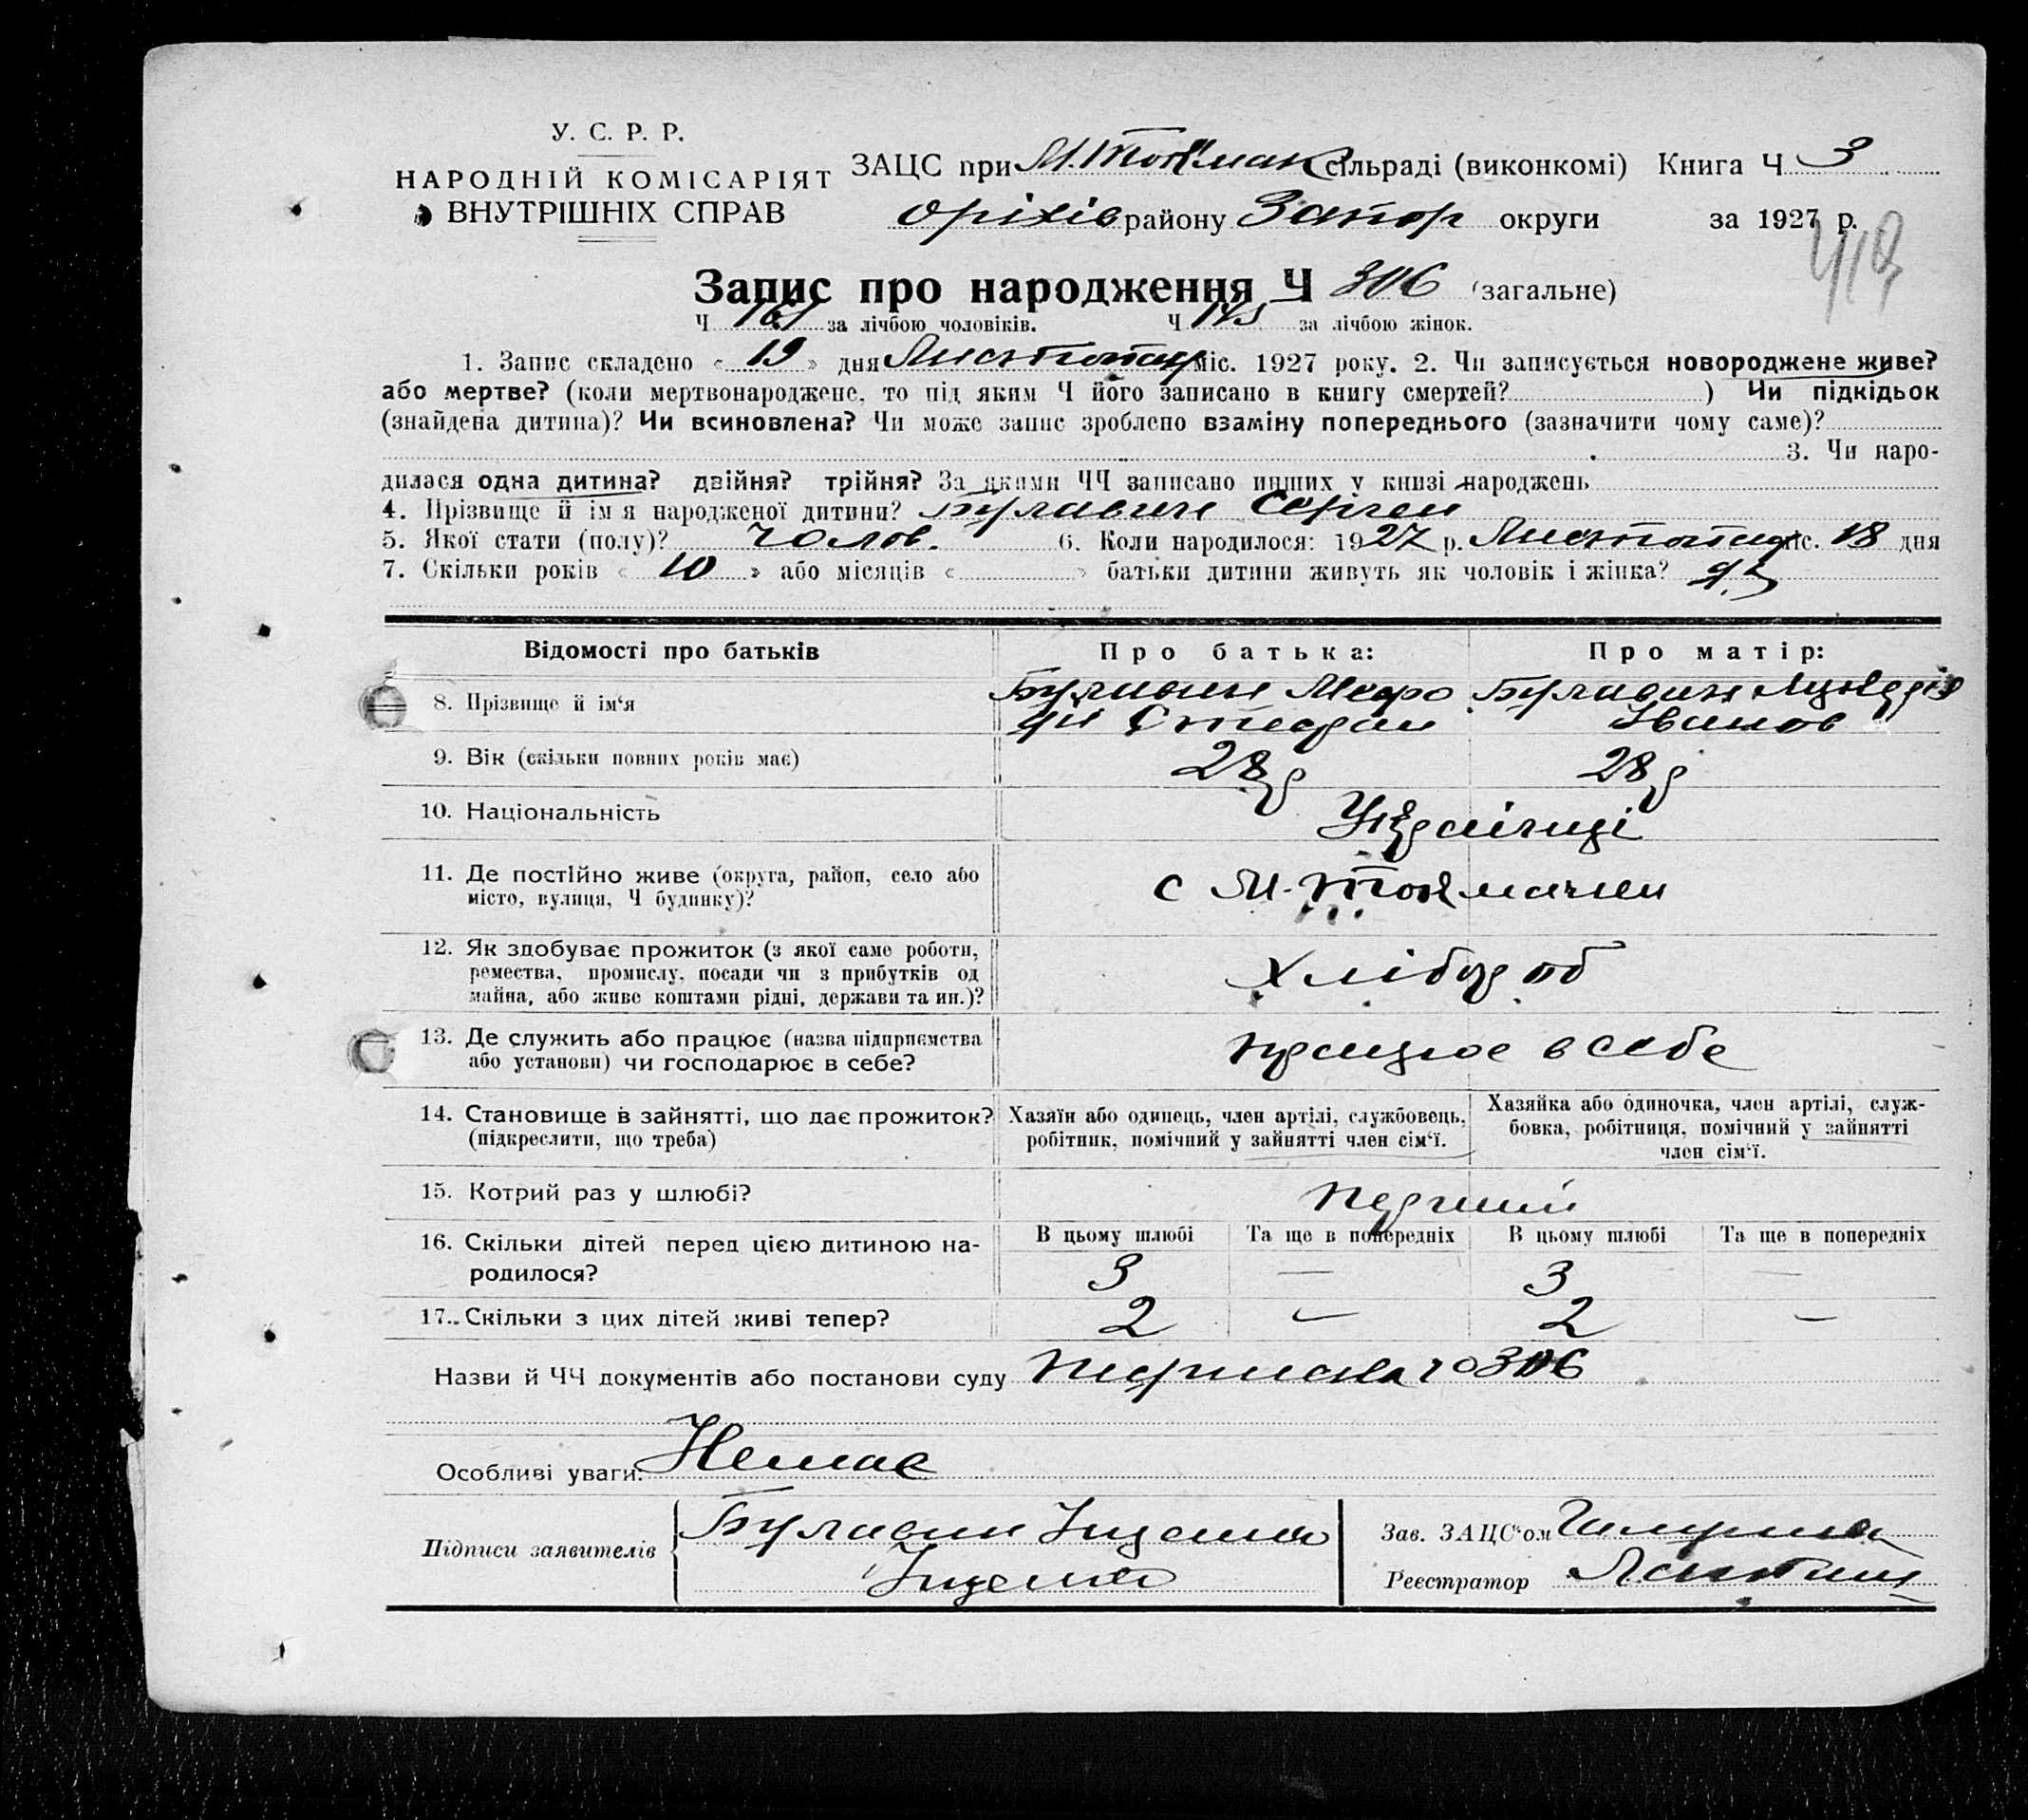 У. С. Р. Р.
НАРОДНІЙ КОМІСАРІЯТ
ВНУТРІШНІХ СПРАВ
ЗАЦС при М. Токмак сільраді (виконкомі) Книга Ч 3
Оріхів району Запор округи за 1927 р.
419
Запис про народження Ч 306 (загальне)
Ч 161 за лічбою чоловіків. Ч 145 за лічбою жінок.
1. Запис складено « 19 » дня Листопад міс. 1927 року. 2. Чи записується новороджене живе?
або мертве? (коли мертвонароджене, то під яким Ч його записано в книгу смертей? ) Чи підкідьок
(знайдена дитина)? Чи всиновлена? Чи може запис зроблено взаміну попереднього (зазначити чому саме)?
3. Чи наро-
дилася одна дитина? двійня? трійня? За якими ЧЧ записано инших у книзі народжень
4. Прізвище й ім'я народженої дитини? Булавин Сергей
5. Якої стати (полу)? Чолов. 6. Коли народилося: 1927 р. Листопад міс. 18 дня
7. Скільки років « 10 » або місяців « » батьки дитини живуть як чоловік і жінка?
Відомості про батьків Про батька: Про матір:
8. Прізвище й ім'я Булавин Мефо Булавин
дій Стефан Іванов
9. Вік (скільки повних років має) 28 р 28 р
10. Національність Українці
11. Де постійно живе (округа, район, село або
місто, вулиця, Ч будинку)? с М-Токмачки
12. Як здобуває прожиток (з якої саме роботи,
ремества, промислу, посади чи з прибутків од
майна, або живе коштами рідні, держави та ин.)? Хлібороб
13. Де служить або працює (назва підприємства
або установи) чи господарює в себе? працює в себе
14. Становище в зайнятті, що дає прожиток?
(підкреслити, що треба)
Хазяїн або одинець, член артілі, службовець,
робітник, помічний у зайнятті член сім'ї.
Хазяйка або одиночка, член артілі, служ-
бовка, робітниця, помічний у зайнятті
член сім'ї.
15. Котрий раз у шлюбі? Перший
16. Скільки дітей перед цією дитиною на-
родилося?
В цьому шлюбі Та ще в попередніх В цьому шлюбі Та ще в попередніх
3 — 3 —
17. Скільки з цих дітей живі тепер? 2 — 2 —
Назви й ЧЧ документів або постанови суду 306
Особливі уваги: Немає
Підписи заявителів Булавин
Зав. ЗАЦС'ом
Реєстратор